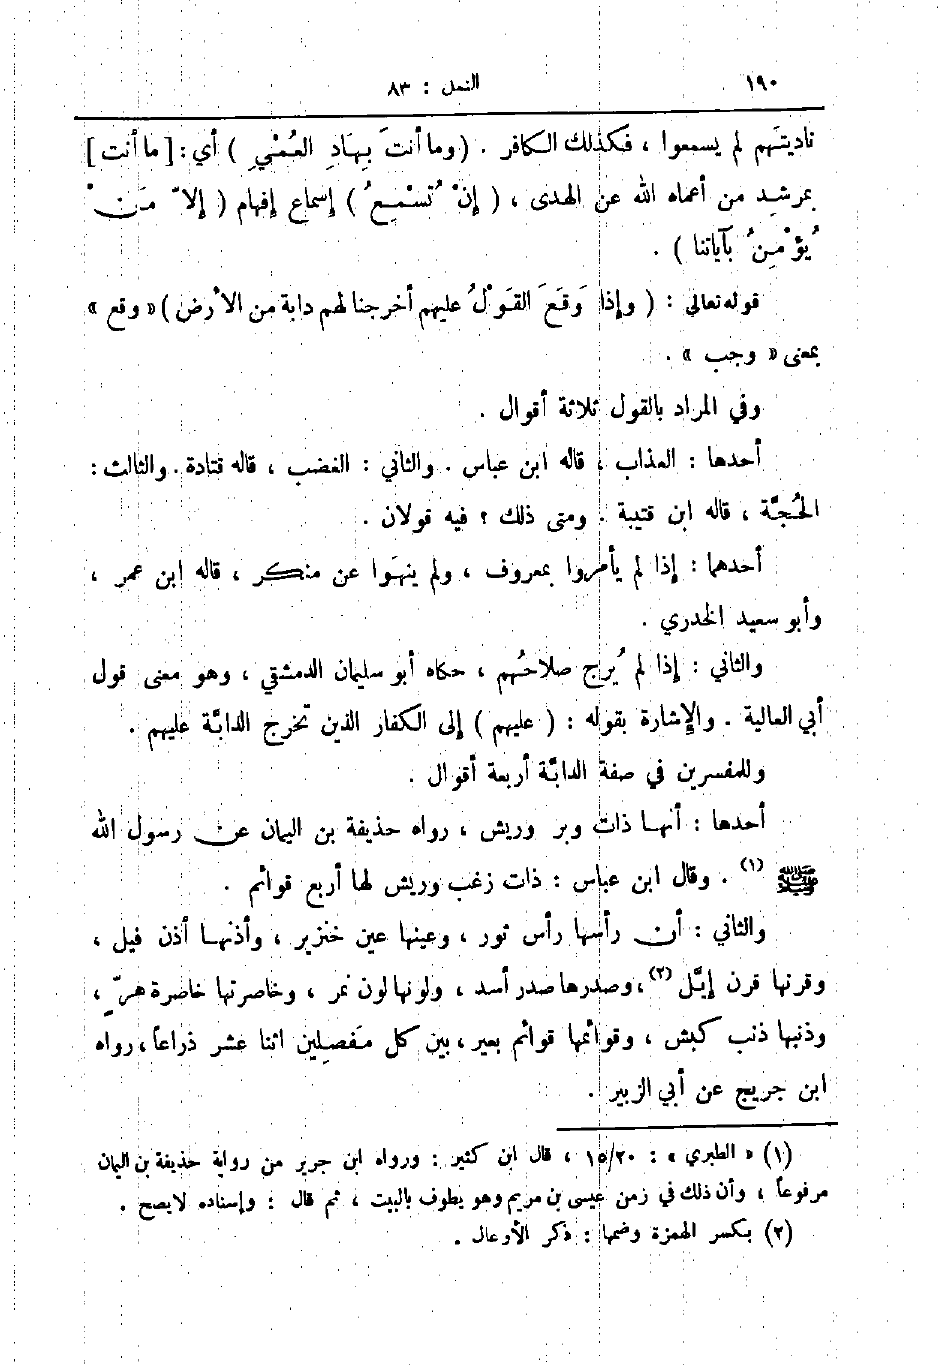 ١٩٠
النمل : ٨٣
ناديتَهم لم يسمعوا ، فكذلك الكافر . ( وما أنتَ بِهَادِ العُمْيِ ) أي : [ ما أنت ]
بمرشد من أعماه الله عن الهدى ، ( إِنْ تُسْمِعُ ) إسماع إفهام ( إلاّ مَنْ
يُؤْمِنُ بآياتنا ) .
قوله تعالى : ( وإذا وَقَعَ القَوْلُ عليهم أخرجنا لهم دابة من الأرض ) « وقع »
بمعنى « وجب » .
وفي المراد بالقول ثلاثة أقوال .
أحدها : العذاب ، قاله ابن عباس . والثاني : الغضب ، قاله قتادة . والثالث :
الحُجَّة ، قاله ابن قتيبة . ومتى ذلك ؟ فيه قولان .
أحدهما : إذا لم يأمروا بمعروف ، ولم ينهَوا عن منكر ، قاله ابن عمر ،
وأبو سعيد الخدري .
والثاني : إذا لم يُرج صلاحُهم ، حكاه أبو سليمان الدمشقي ، وهو معنى قول
أبي العالية . والإشارة بقوله : ( عليهم ) إلى الكفار الذين تخرج الدابَّة عليهم .
وللمفسرين في صفة الدابَّة أربعة أقوال .
أحدها : أنها ذات وبر وريش ، رواه حذيفة بن اليمان عن رسول الله
ﷺ (١) . وقال ابن عباس : ذات زغب وريش لها أربع قوائم .
والثاني : أن رأسها رأس ثور ، وعينها عين خنزير ، وأذنها أذن فيل ،
وقرنها قرن إيَّل (٢) ، وصدرها صدر أسد ، ولونها لون نمر ، وخاصرتها خاصرة هرٍّ ،
وذنبها ذنب كبش ، وقوائمها قوائم بعير ، بين كل مَفصِلين اثنا عشر ذراعاً ، رواه
ابن جريج عن أبي الزبير .
(١) « الطبري » : ١٥/٢٠ ، قال ابن كثير : ورواه ابن جرير من رواية حذيفة بن اليمان
مرفوعاً ، وأن ذلك في زمن عيسى بن مريم وهو يطوف بالبيت ، ثم قال : وإسناده لا يصح .
(٢) بكسر الهمزة وضمها : ذكر الأوعال .